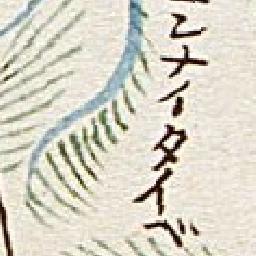 ニナイタイベ